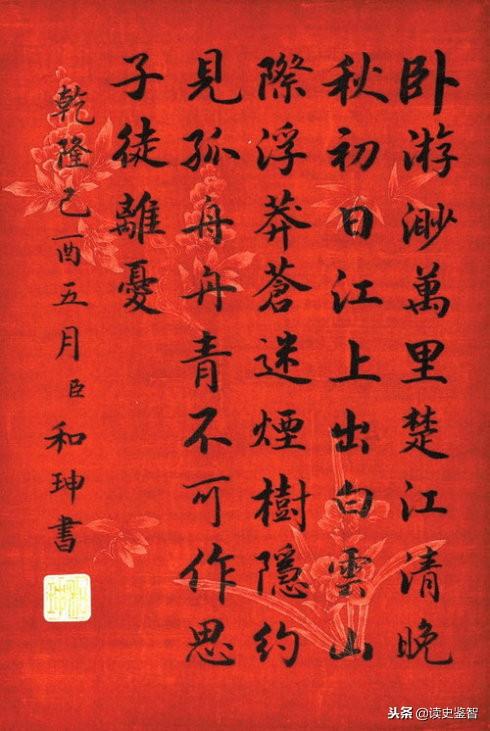 卧游渺萬里楚江清晚
秋初日江上出白雲山
際浮莽蒼迷煙樹隱約
見孤舟舟青不可作思
子徒離憂
乾隆己酉五月臣和珅書
头条 @读史鉴智